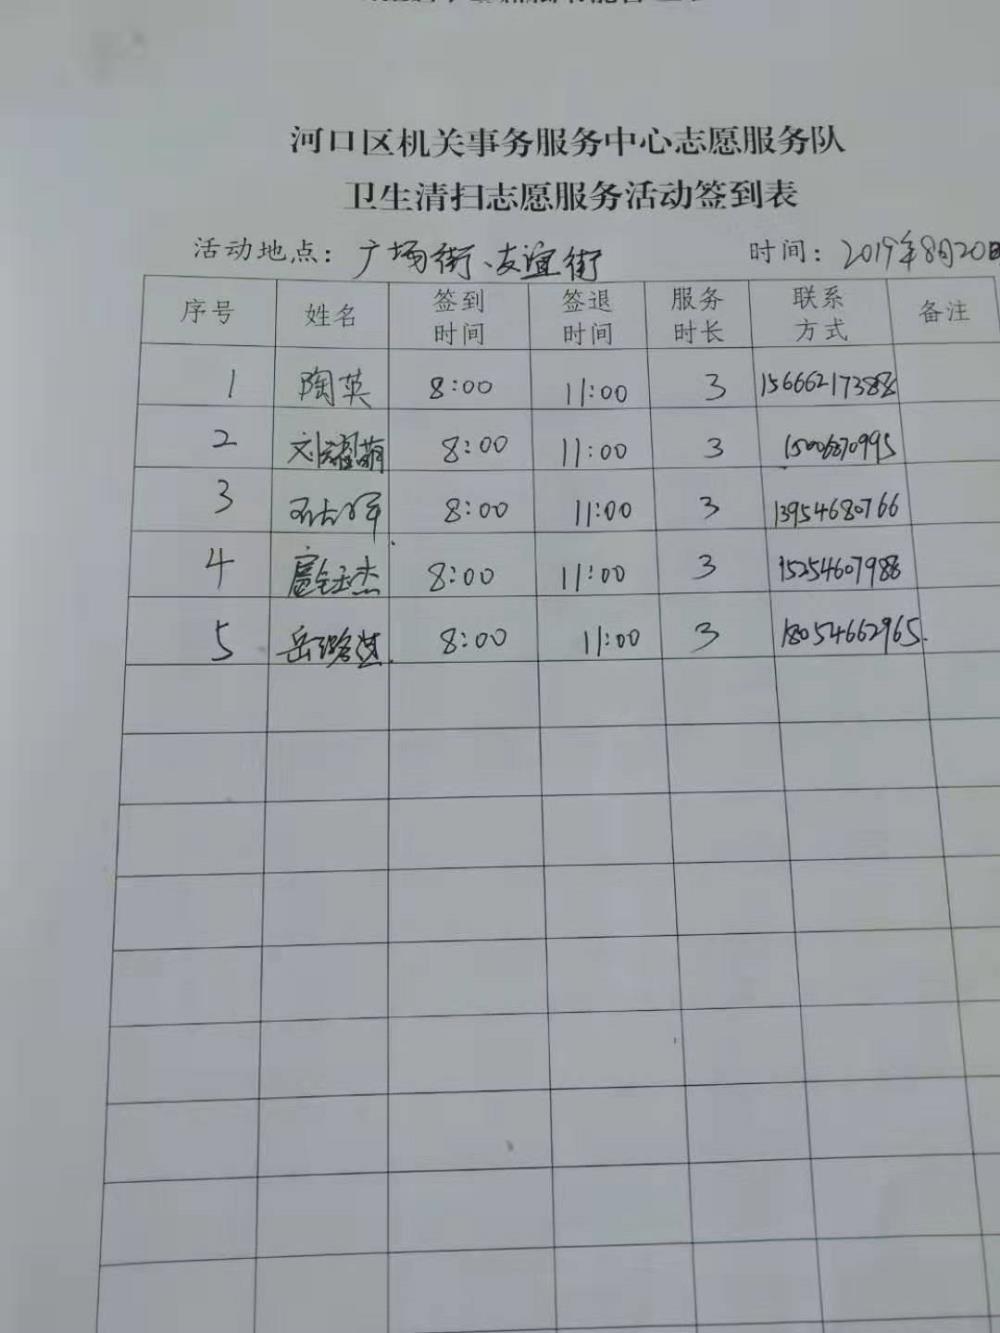 河口区机关事务服务中心志愿服务队
卫生清扫志愿服务活动签到表
活动地点：广场街、友谊街 时间：2019年8月20日
序号 姓名 签到时间 签退时间 服务时长 联系方式 备注
1 陶英 8:00 11:00 3 15666217388
2 8:00 11:00 3 15006870995
3 8:00 11:00 3 13954680766
4 8:00 11:00 3 15254607988
5 8:00 11:00 3 18054662965.